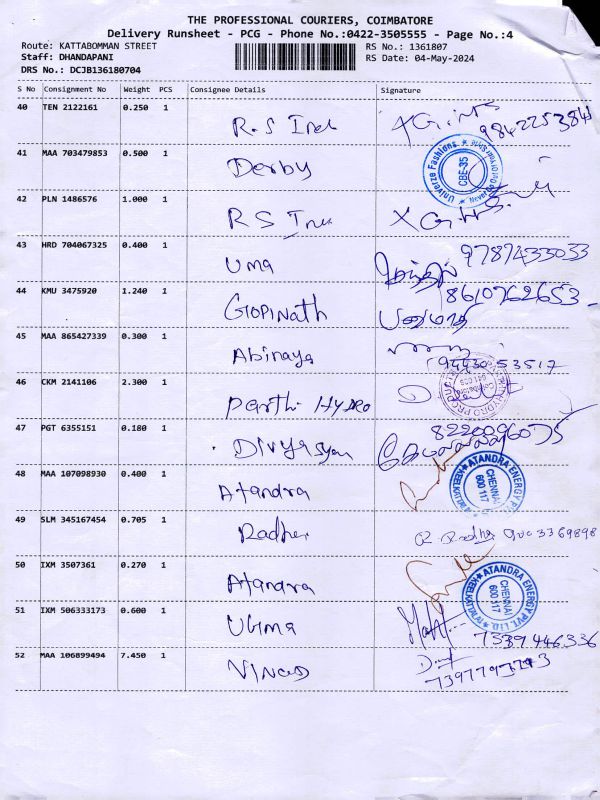 THE PROFESSIONAL COURIERS, COIMBATORE
Delivery Runsheet - PCG - Phone No.:0422-3505555 - Page No.:4
Route: KATTABOMMAN STREET RS No.: 1361807
Staff: DHANDAPANI RS Date: 04-May-2024
DRS No.: DCJB136180704
S No Consignment No Weight PCS Consignee Details Signature
40 TEN 2122161 0.250 1
R.S 9842253841
41 MAA 703479853 0.500 1
Derby Univerze Fashions CBE-35
42 PLN 1486576 1.000 1
R S
43 HRD 704067325 0.400 1
Uma 9787433033
44 KMU 3475920 1.240 1
Gopinath 8610762653
45 MAA 865427339 0.300 1
Abinaya 94430 53517
46 CKM 2141106 2.300 1
Parthi Hydro
47 PGT 6355151 0.180 1
Divyasyan 8220096075
48 MAA 107098930 0.400 1
Atandra ATANDRA ENERGY PVT. LTD. CHENNAI 600 117
49 SLM 345167454 0.705 1
Radher R. Radha
50 IXM 3507361 0.270 1
Atandra ATANDRA ENERGY PVT. LTD. CHENNAI 600 117
51 IXM 506333173 0.600 1
Ugima 7339446336
52 MAA 106899494 7.450 1